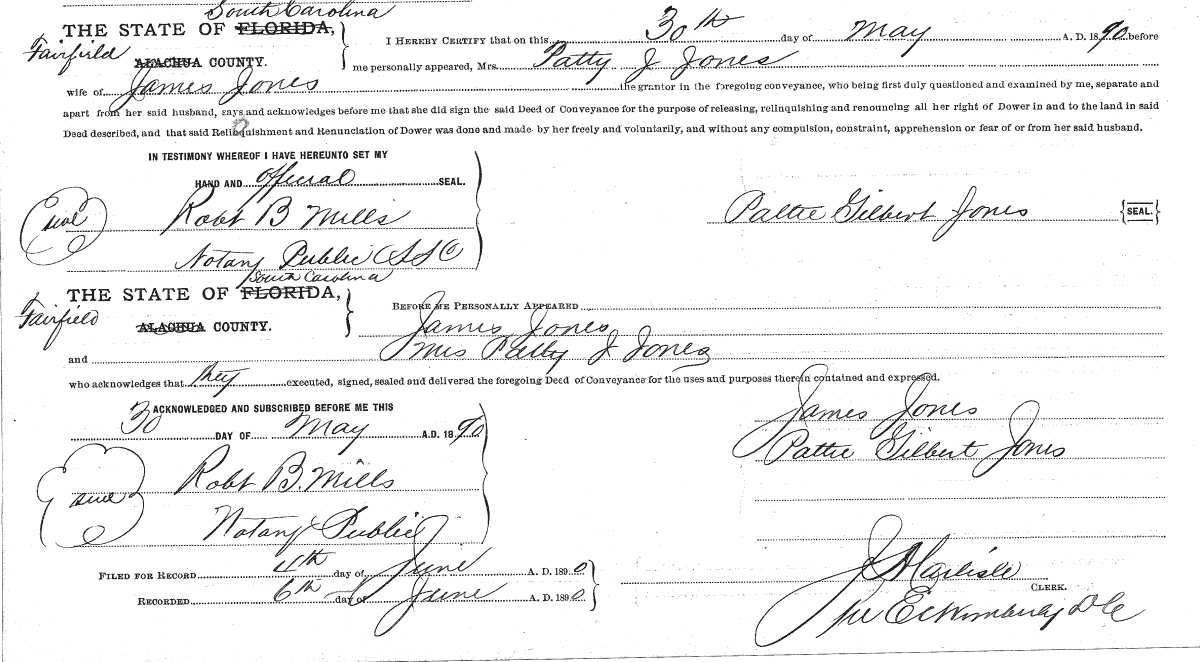 South Carolina
THE STATE OF FLORIDA,
Fairfield
ALACHUA COUNTY.
I HEREBY CERTIFY that on this 30th day of May A. D. 1890 before
me personally appeared, Mrs. Patty J Jones
wife of James Jones the grantor in the foregoing conveyance, who being first duly questioned and examined by me, separate and
apart from her said husband, says and acknowledges before me that she did sign the said Deed of Conveyance for the purpose of releasing, relinquishing and renouncing all her right of Dower in and to the land in said
Deed described, and that said Relinquishment and Renunciation of Dower was done and made by her freely and voluntarily, and without any compulsion, constraint, apprehension or fear of or from her said husband.
IN TESTIMONY WHEREOF I HAVE HEREUNTO SET MY
HAND AND official SEAL.
Robt B Mills
Pattie Gilbert Jones {SEAL.}
Notary Public
South Carolina
THE STATE OF FLORIDA,
Fairfield
ALACHUA COUNTY.
BEFORE ME PERSONALLY APPEARED
James Jones
and Mrs Patty J Jones
who acknowledges that they executed, signed, sealed and delivered the foregoing Deed of Conveyance for the uses and purposes therein contained and expressed.
ACKNOWLEDGED AND SUBSCRIBED BEFORE ME THIS
30 DAY OF May A.D. 1890
James Jones
Pattie Gilbert Jones
Robt B. Mills
Notary Public
FILED FOR RECORD 4th day of June A. D. 1890
RECORDED 6th day of June A. D. 1890
CLERK.